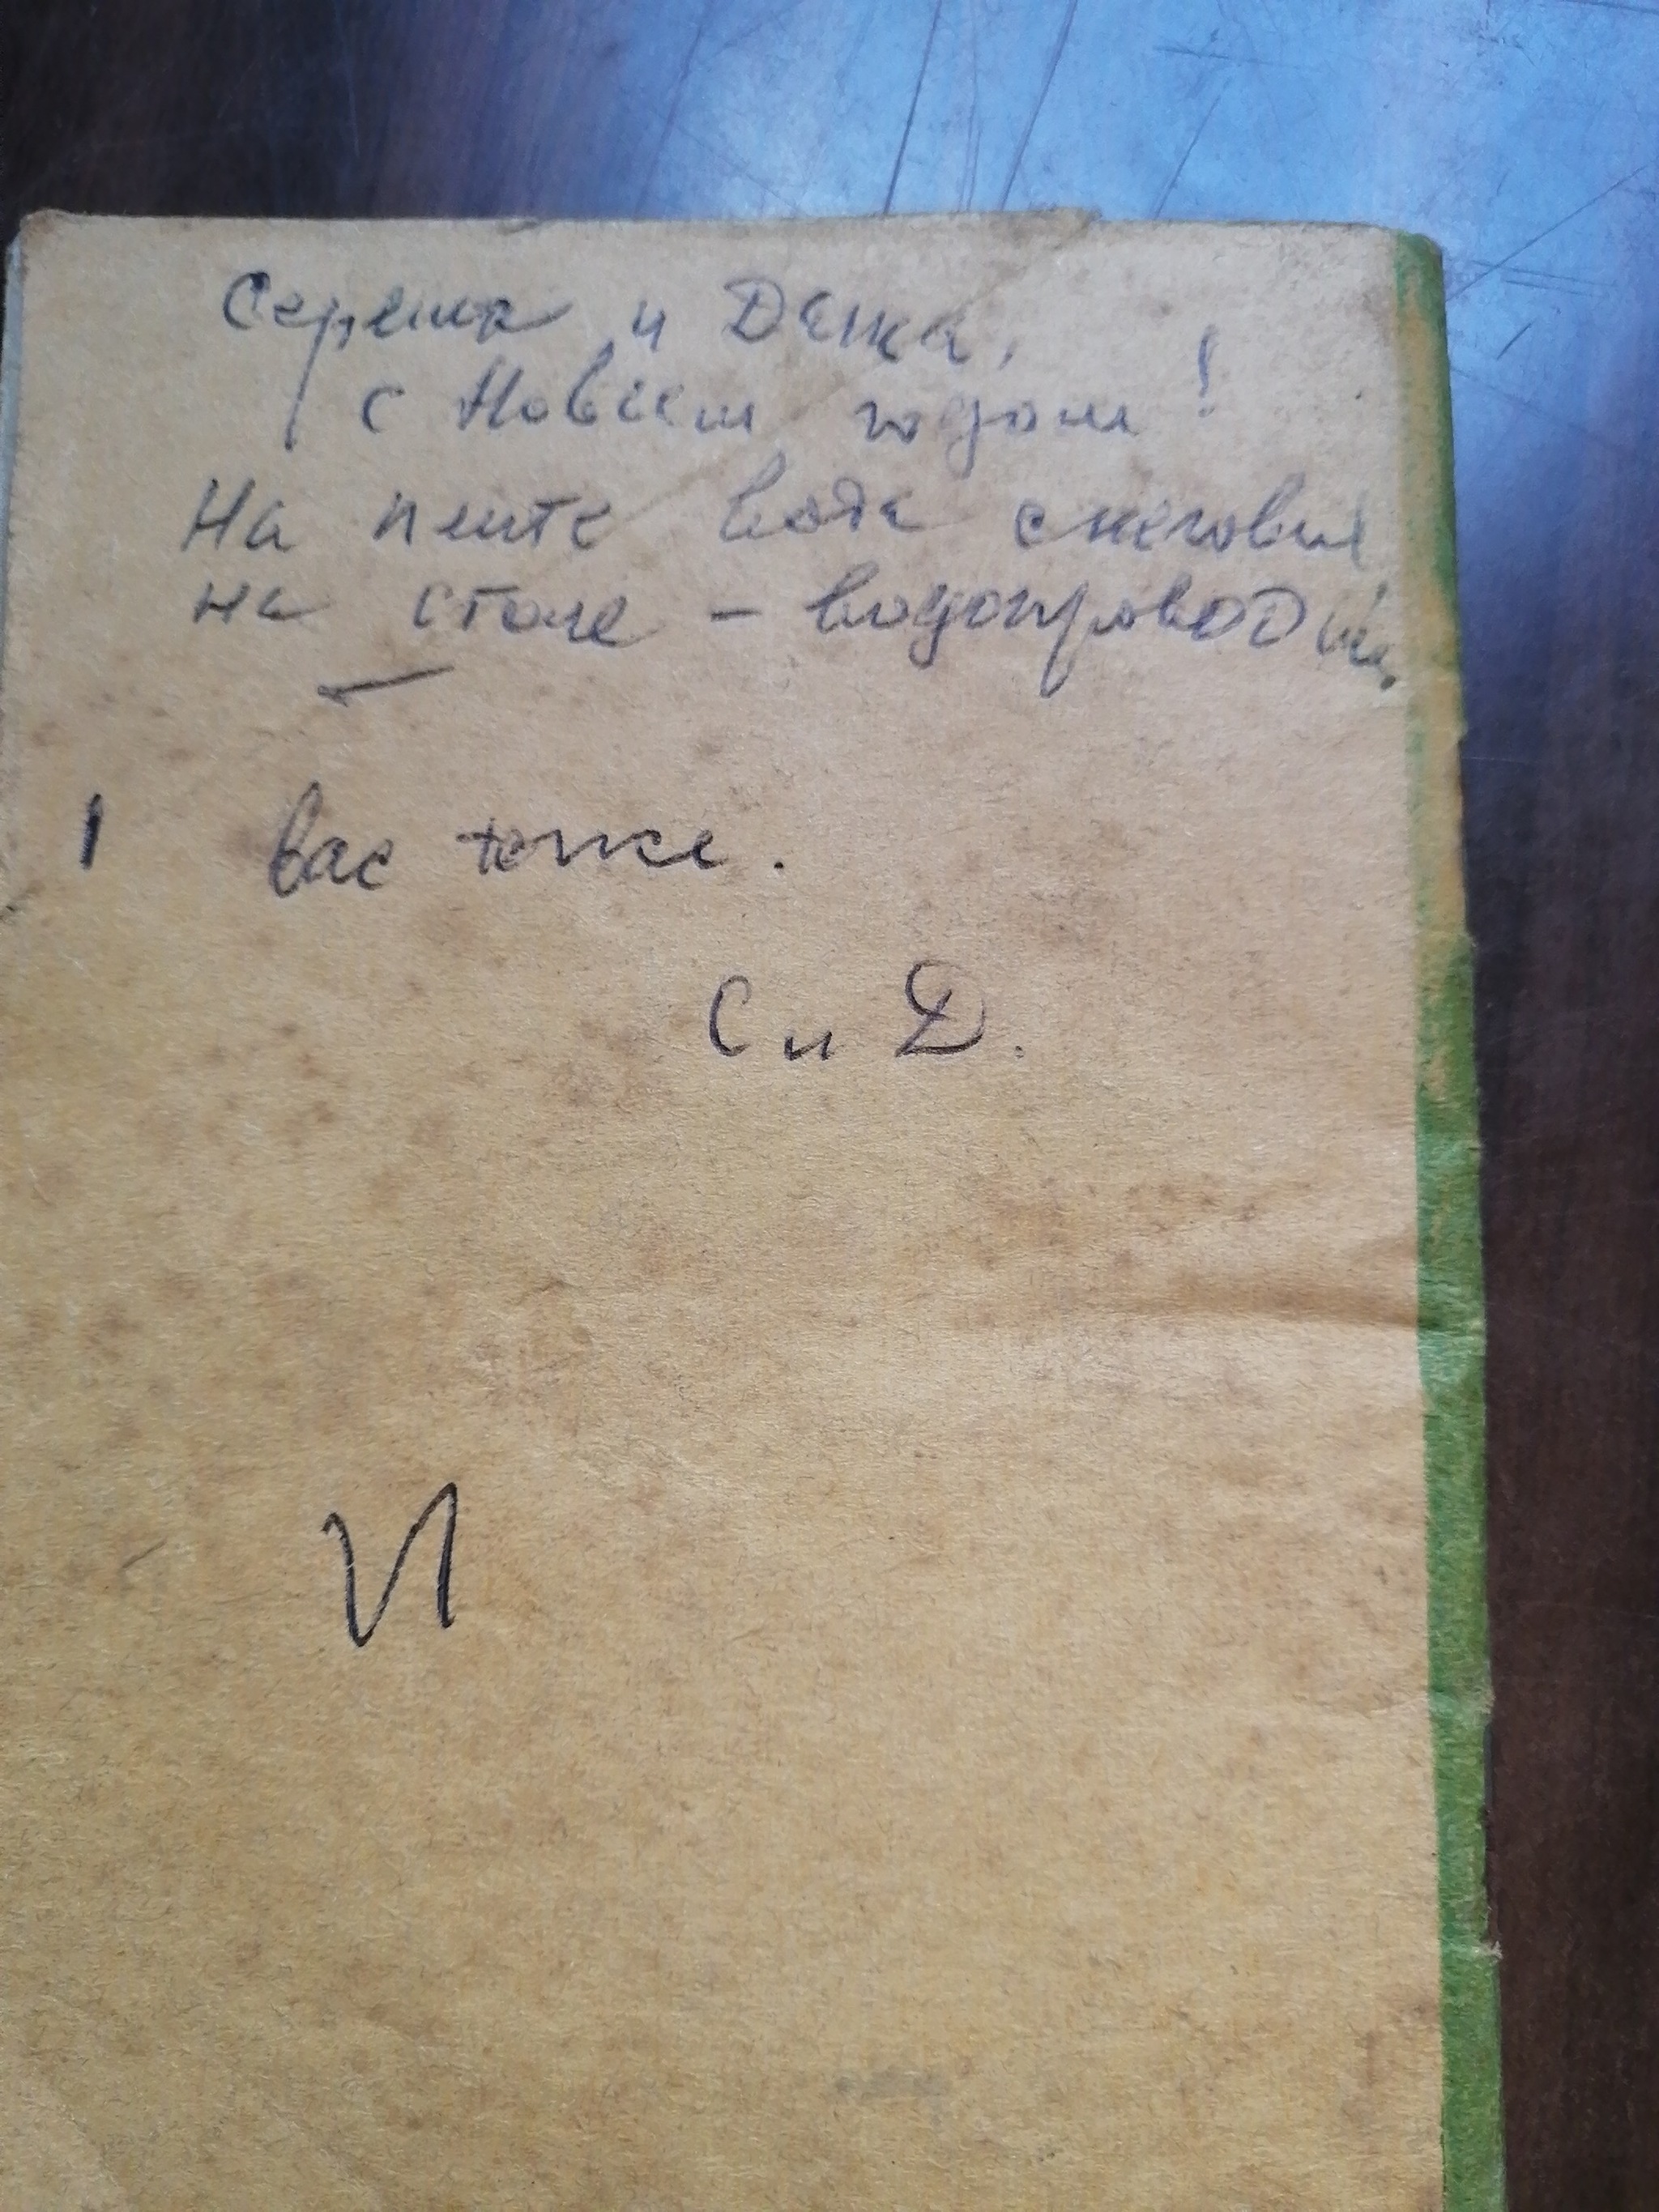 Сережа и Дежа,
с Новым годом!
На плите вода снеговая,
на столе – водопроводная.
вас тоже.
С и Д.
И